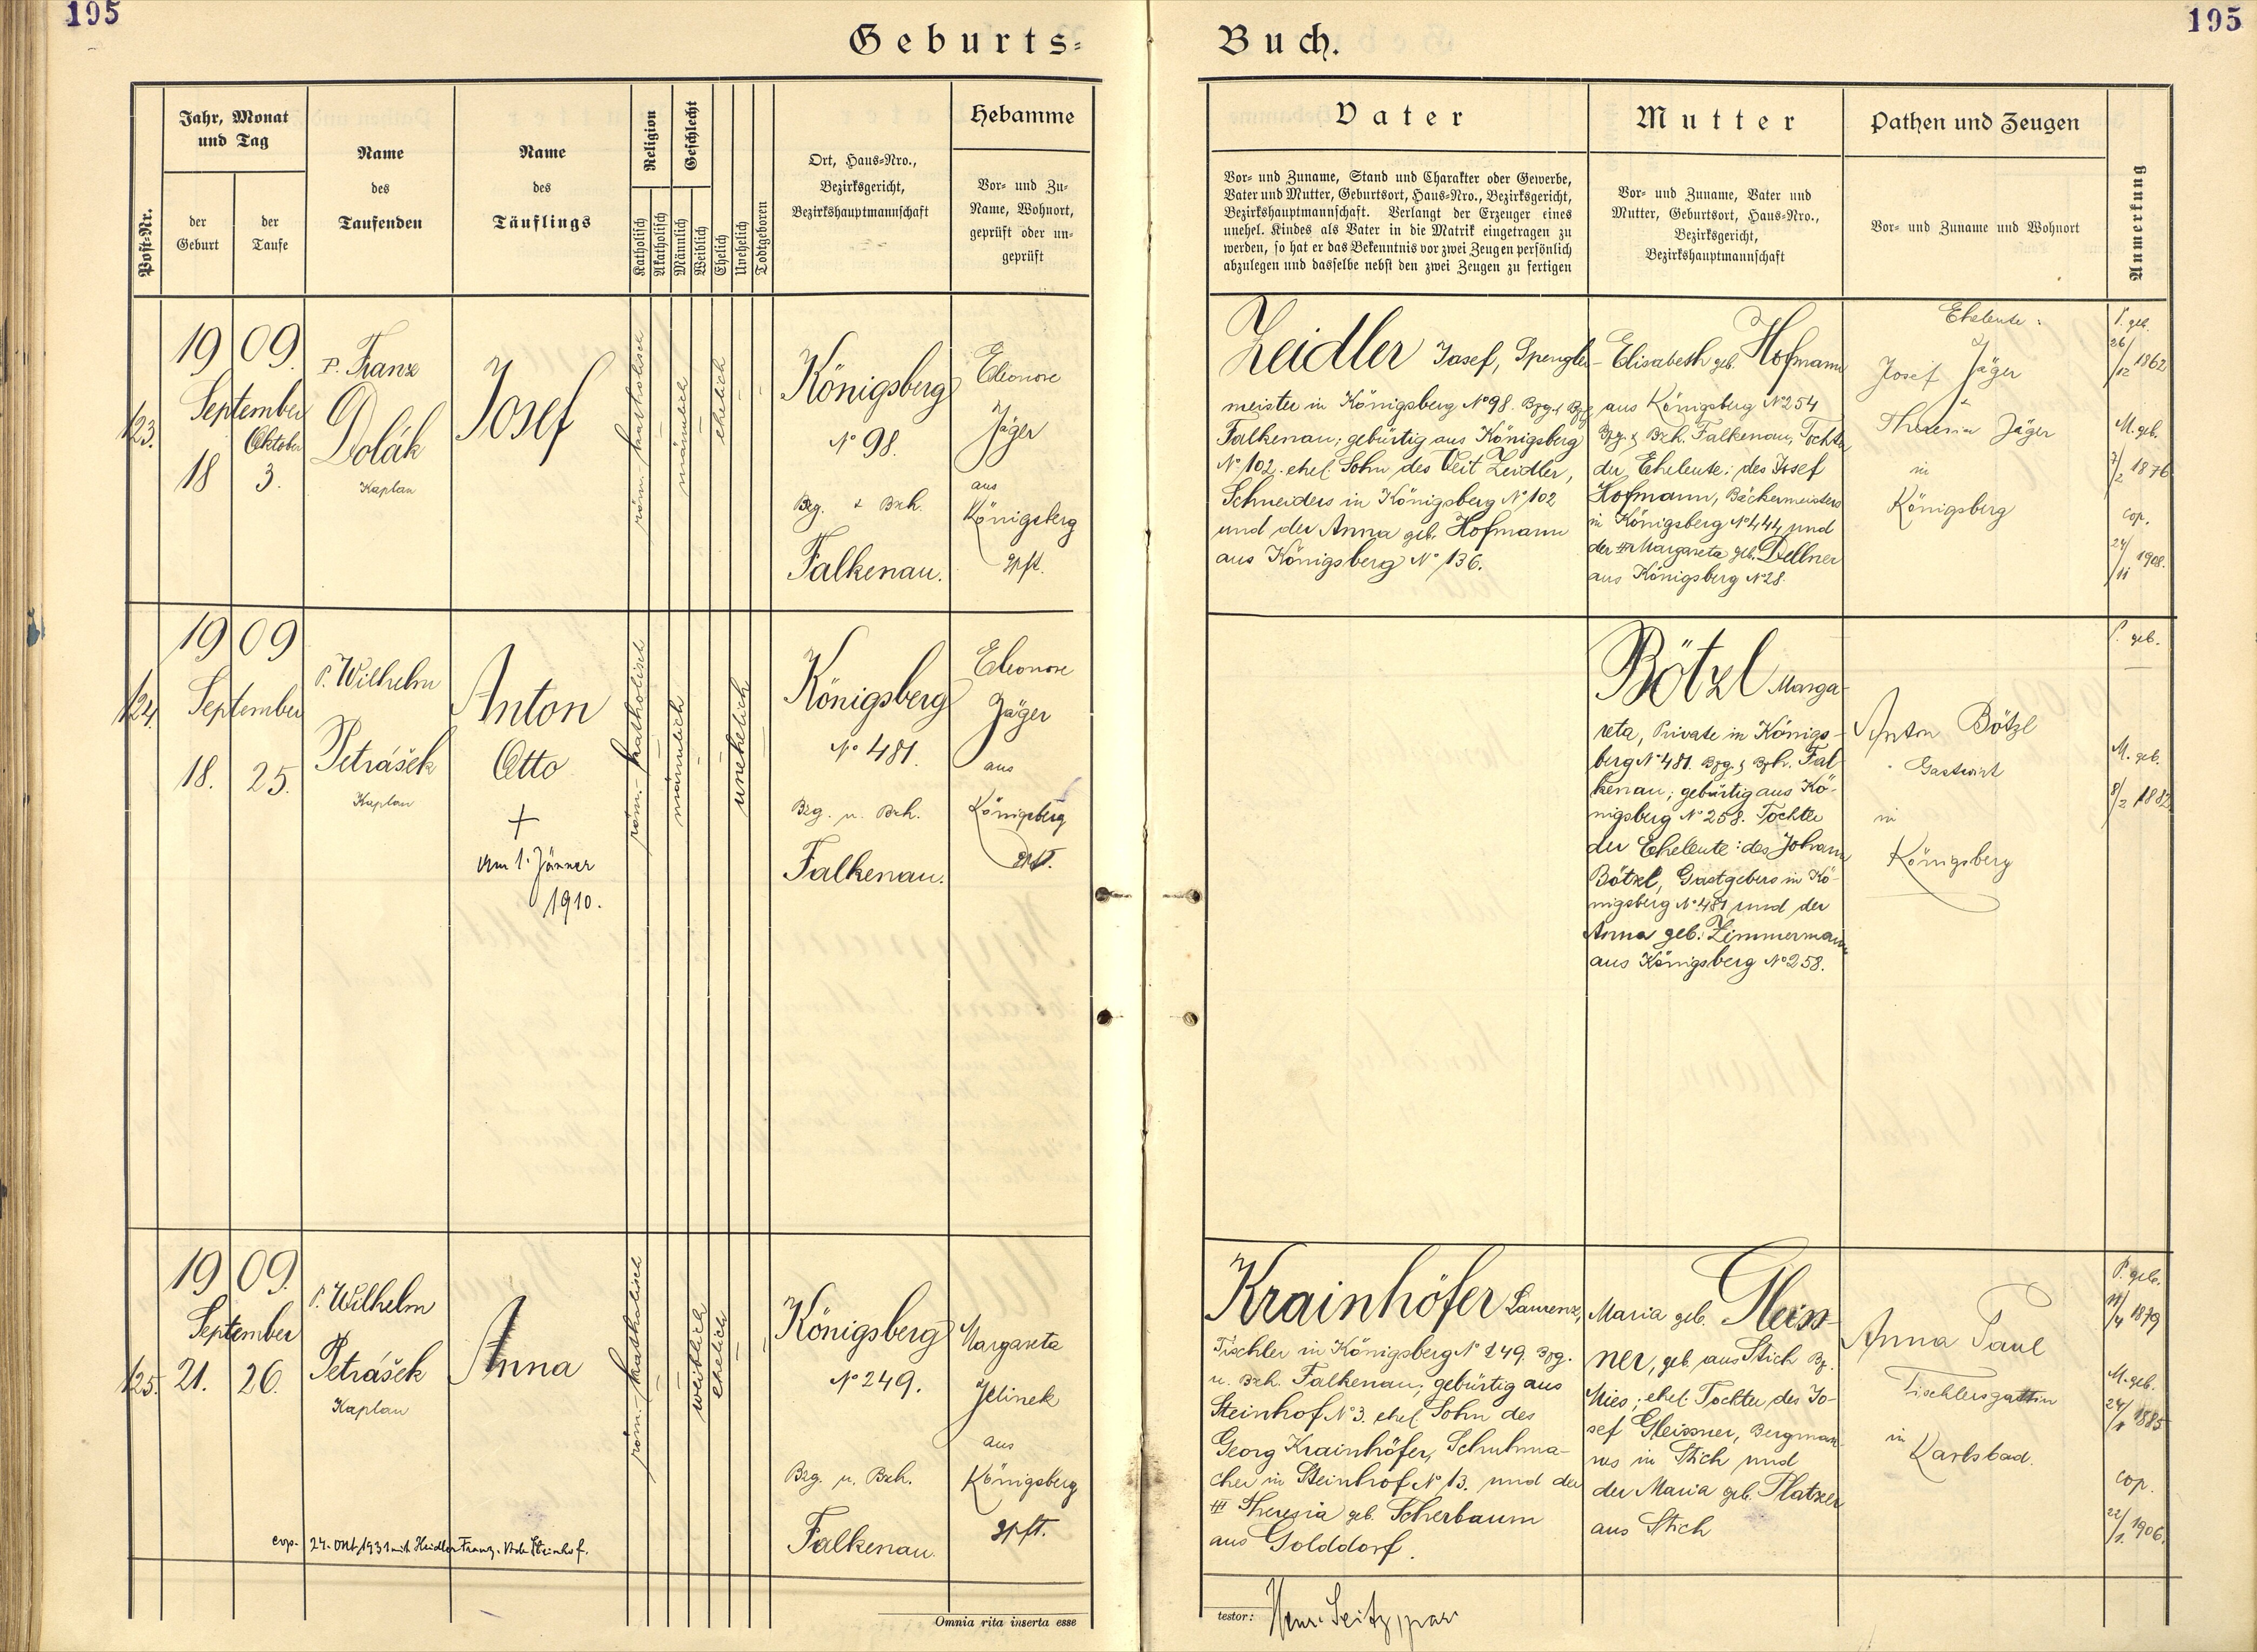 195
195
Geburts-
Buch.
Post-Nr.
Jahr, Monat
und Tag
der
Geburt
der
Taufe
Name
des
Taufenden
Name
des
Täuflings
Religion
Katholisch
Akatholisch
Geschlecht
Männlich
Weiblich
Ehelich
Unehelich
Todtgeboren
Ort, Haus-Nro.,
Bezirksgericht,
Bezirkshauptmannschaft
Hebamme
Vor- und Zu-
Name, Wohnort,
geprüft oder un-
geprüft
Vater
Vor- und Zuname, Stand und Charakter oder Gewerbe,
Vater und Mutter, Geburtsort, Haus-Nro., Bezirksgericht,
Bezirkshauptmannschaft. Verlangt der Erzeuger eines
unehel. Kindes als Vater in die Matrik eingetragen zu
werden, so hat er das Bekenntnis vor zwei Zeugen persönlich
abzulegen und dasselbe nebst den zwei Zeugen zu fertigen
Mutter
Vor- und Zuname, Vater und
Mutter, Geburtsort, Haus-Nro.,
Bezirksgericht,
Bezirkshauptmannschaft
Pathen und Zeugen
Vor- und Zuname und Wohnort
Anmerkung
123.
1909.
September
18
Oktober
3.
P. Franz
Dolák
Kaplan
Josef
röm.-katholisch
männlich
ehelich
Königsberg
No 98.
Bzg. & Bzh.
Falkenau.
Eleonore
Jäger
aus
Königsberg
gpft.
Zeidler Josef, Spengler-
meister in Königsberg No 98. Bzg. & Bzh.
Falkenau; gebürtig aus Königsberg
No 102. ehel. Sohn des Veit Zeidler,
Schneiders in Königsberg No 102
und der Anna geb. Hofmann
aus Königsberg No 136.
Elisabeth geb. Hofmann
aus Königsberg No 254
Bzg. & Bzh. Falkenau, Tochter
der Eheleute: des Josef
Hofmann, Bäckermeisters
in Königsberg No 444 und
der Margareta geb. Dellner
aus Königsberg No 28.
Eheleute:
Josef Jäger
&
Theresia Jäger
in
Königsberg
P. geb.
26/12 1862
M. geb.
7/2 1876
cop.
24/11 1908.
124.
1909
September
18. 25.
P. Wilhelm
Petrášek
Kaplan
Anton
Otto
+
am 1. Jänner
1910.
röm.-katholisch
männlich
unehelich
Königsberg
No 481.
Bzg. u. Bzh.
Falkenau.
Eleonore
Jäger
aus
Königsberg
gpft.
Bötzl Marga-
reta, Private in Königs-
berg No 481. Bzg. & Bzh. Fal-
kenau; gebürtig aus Kö-
nigsberg No 258. Tochter
der Eheleute: des Johann
Bötzl, Gastgebers in Kö-
nigsberg No 481 und der
Anna geb. Zimmermann
aus Königsberg No 258.
Anton Bötzl
Gastwirt
in
Königsberg
P. geb.
M. geb.
8/2 1882
125.
1909.
September
21. 26.
P. Wilhelm
Petrášek
Kaplan
Anna
röm.-katholisch
weiblich
ehelich
Königsberg
No 249.
Bzg. u. Bzh.
Falkenau.
Margareta
Jelinek
aus
Königsberg
gpft.
Krainhöfer Laurenz,
Tischler in Königsberg No 249. Bzg.
u. Bzh. Falkenau; gebürtig aus
Steinhof No 3. ehel. Sohn des
Georg Krainhöfer, Schuhma-
cher in Steinhof No 13. und der
Theresia geb. Scherbaum
aus Golddorf.
Maria geb. Gleiss-
ner, geb. aus Stich Bz.
Mies; ehel. Tochter des Jo-
sef Gleissner, Bergman-
nes in Stich und
der Maria geb. Platzer
aus Stich
Anna Paul
Tischlersgattin
in
Karlsbad.
P. geb.
11/4 1879
M. geb.
24/1 1885
cop.
22/1. 1906.
cop. 24. Okt. 1931 mit Heidler Franz,
Steinhof.
Omnia rita inserta esse
testor: